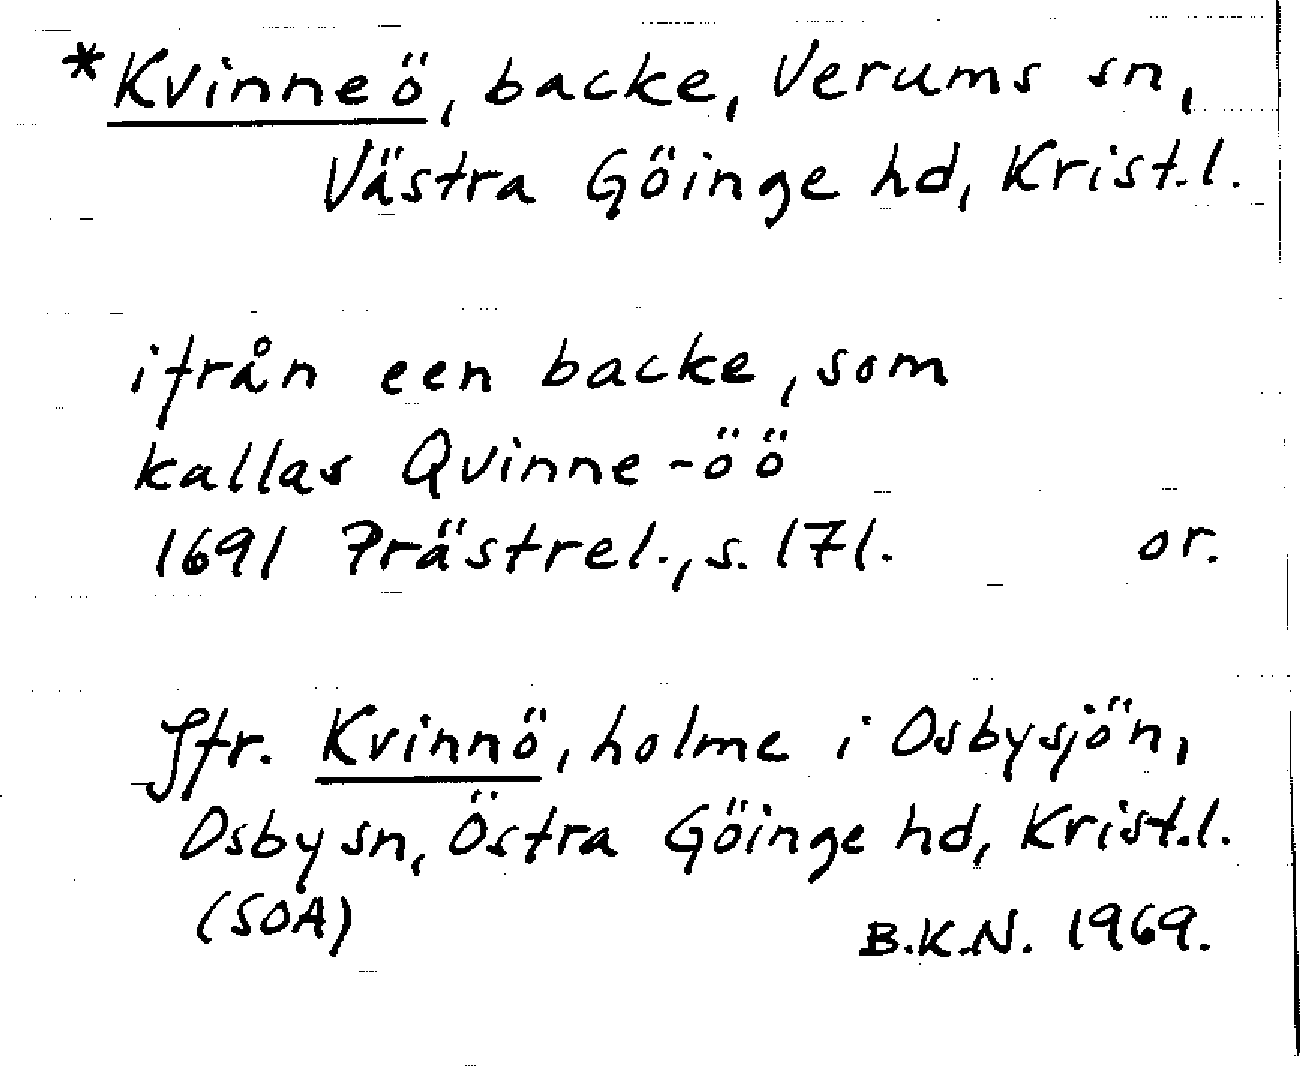 *Kvinneö, backe, Verums sn,
Västra Göinge hd, Krist.l.
ifrån een backe, som
kallas Qvinne-öö
1691 Prästrel., s. 171. or.
Jfr. Kvinnö, holme i Osbysjön,
Osby sn, Östra Göinge hd, Krist.l.
(SOA) B.K.N. 1969.